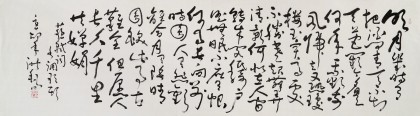 明月幾時有
把酒問青天不知
天上宮闕今夕是
何年我欲乘
風歸去又恐
瓊樓玉宇高處
不勝寒起舞弄
清影何似在人間
轉朱閣低綺戶照
無眠不應有恨
何事長向別
時圓人有悲歡
離合月有陰晴
圓缺此事古
難全但願人
長久千里
共嬋娟
蘇軾詞
水調歌頭